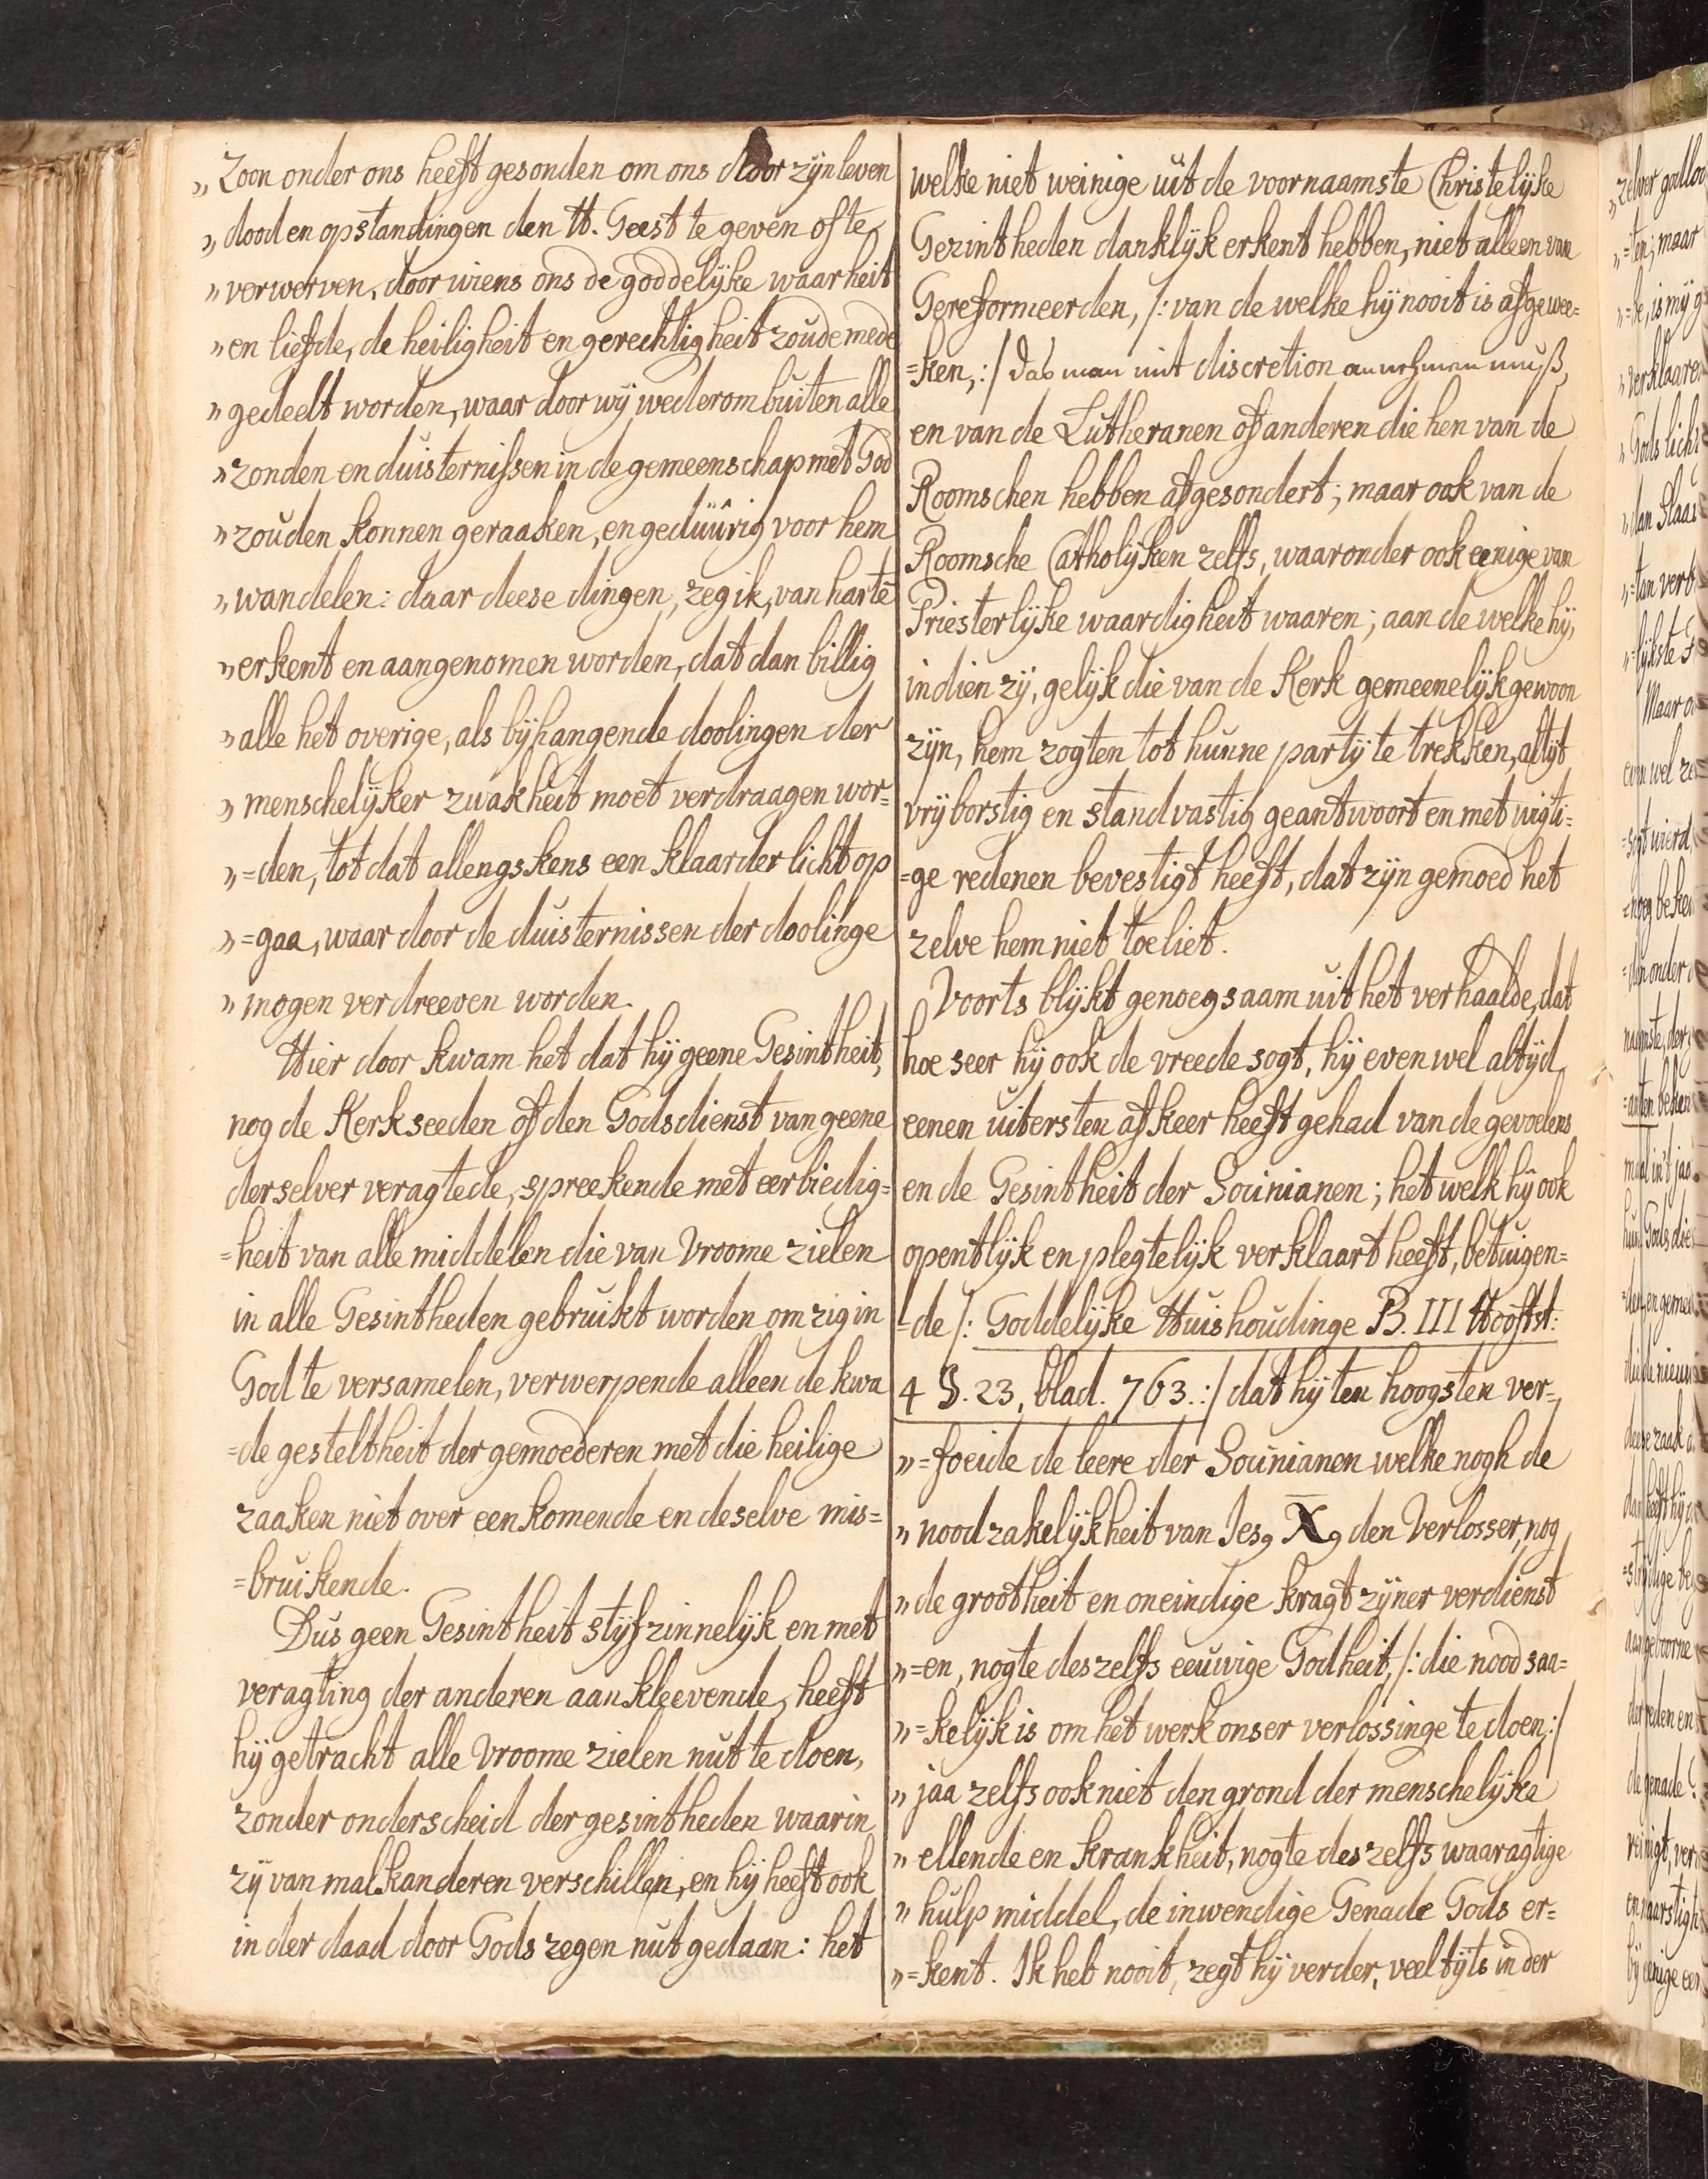 „ Zoon onder ons heeft gesonden om ons door zijn leven
„ dood en opstandingen den H. Geest te geven of te
„ verwerven, door wiens ons de goddelijke waarheit
„ en liefde, de heiligheit en gerechtigheit zoude mede
„ gedeelt worden, waar door wij wederom buiten alle
„ zonden en duisternissen in de gemeenschap met God
„ zouden konnen geraaken, en geduurig voor hem
„ wandelen: daar deese dingen, zeg ik, van harte
„ erkent en aangenomen worden, dat dan billig
„ alle het overige, als bijhangende doolingen der
„ menschelijker zwakheit moet verdraagen wor=
„ =den, tot dat allengskens een klaarder licht op
„ =gaa, waar door de duisternissen der doolinge
„ mogen verdreeven worden.
Hier door kwam het dat hij geene Gesintheit,
nog de Kerkseeden of den Godsdienst van geene
derselver veragtede, spreekende met eerbiedig=
=heit van alle middelen die van Vroome zielen
in alle Gesintheden gebruikt worden om zig in
God te versamelen, verwerpende alleen de kwa
=de gesteltheit der gemoederen met die heilige
zaaken niet over eenkomende en deselve mis=
=bruikende.
Dus geen Gesintheit stijfzinnelijk en met
veragting der anderen aankleevende, heeft
hij getracht alle Vroome zielen nut te doen,
zonder onderscheid der gesintheden waarin
zij van malkanderen verschillen, en hij heeft ook
in der daad door Gods zegen nut gedaan: het
welke niet weinige uit de voornaamste Christelijke
Gezintheden danklijk erkent hebben, niet alleen van
Gereformeerden, /: van de welke hij nooit is afgewee=
=ken, :/ das man mit discretion annehmen muß,
en van de Lutheranen of anderen die hen van de
Roomschen hebben afgesondert; maar ook van de
Roomsche Catholijken zelfs, waaronder ook eenige van
Priesterlijke waardigheit waaren; aan de welke hij,
indien zij, gelijk die van de Kerk gemeenelijk gewoon
zijn, hem zogten tot hunne partij te trekken, altijt
vrijborstig en standvastig geantwoort en met wigti=
=ge redenen bevestigt heeft, dat zijn gemoed het
zelve hem niet toeliet.
Voorts blijkt genoegsaam uit het verhaalde, dat
hoe seer hij ook de vreede sogt, hij evenwel altijd
eenen uitersten afkeer heeft gehad van de gevoelens
en de Gesintheit der Socinianen; het welk hij ook
opentlijk en plegtelijk verklaart heeft, betuigen=
=de /: Goddelijke Huishoudinge B. III Hooftst:
4 §. 23, blad. 763. :/ dat hij ten hoogsten ver=
„ =foeide de leere der Socinianen welke nogh de
„ noodzakelijkheit van Jesꝯ Xꝯ den Verlosser, nog
„ de grootheit en oneindige kragt zijner verdienst
„ =en, nogte deszelfs eeuwige Godheit, /: die noodsaa=
„ =kelijk is om het werk onser verlossinge te doen, :/
„ jaa zelfs ook niet den grond der menschelijke
„ ellende en krankheit, nogte deszelfs waaragtige
„ hulpmiddel, de inwendige Genade Gods er=
„ =kent. Ik heb nooit, zegt hij verder, veeltijts in der